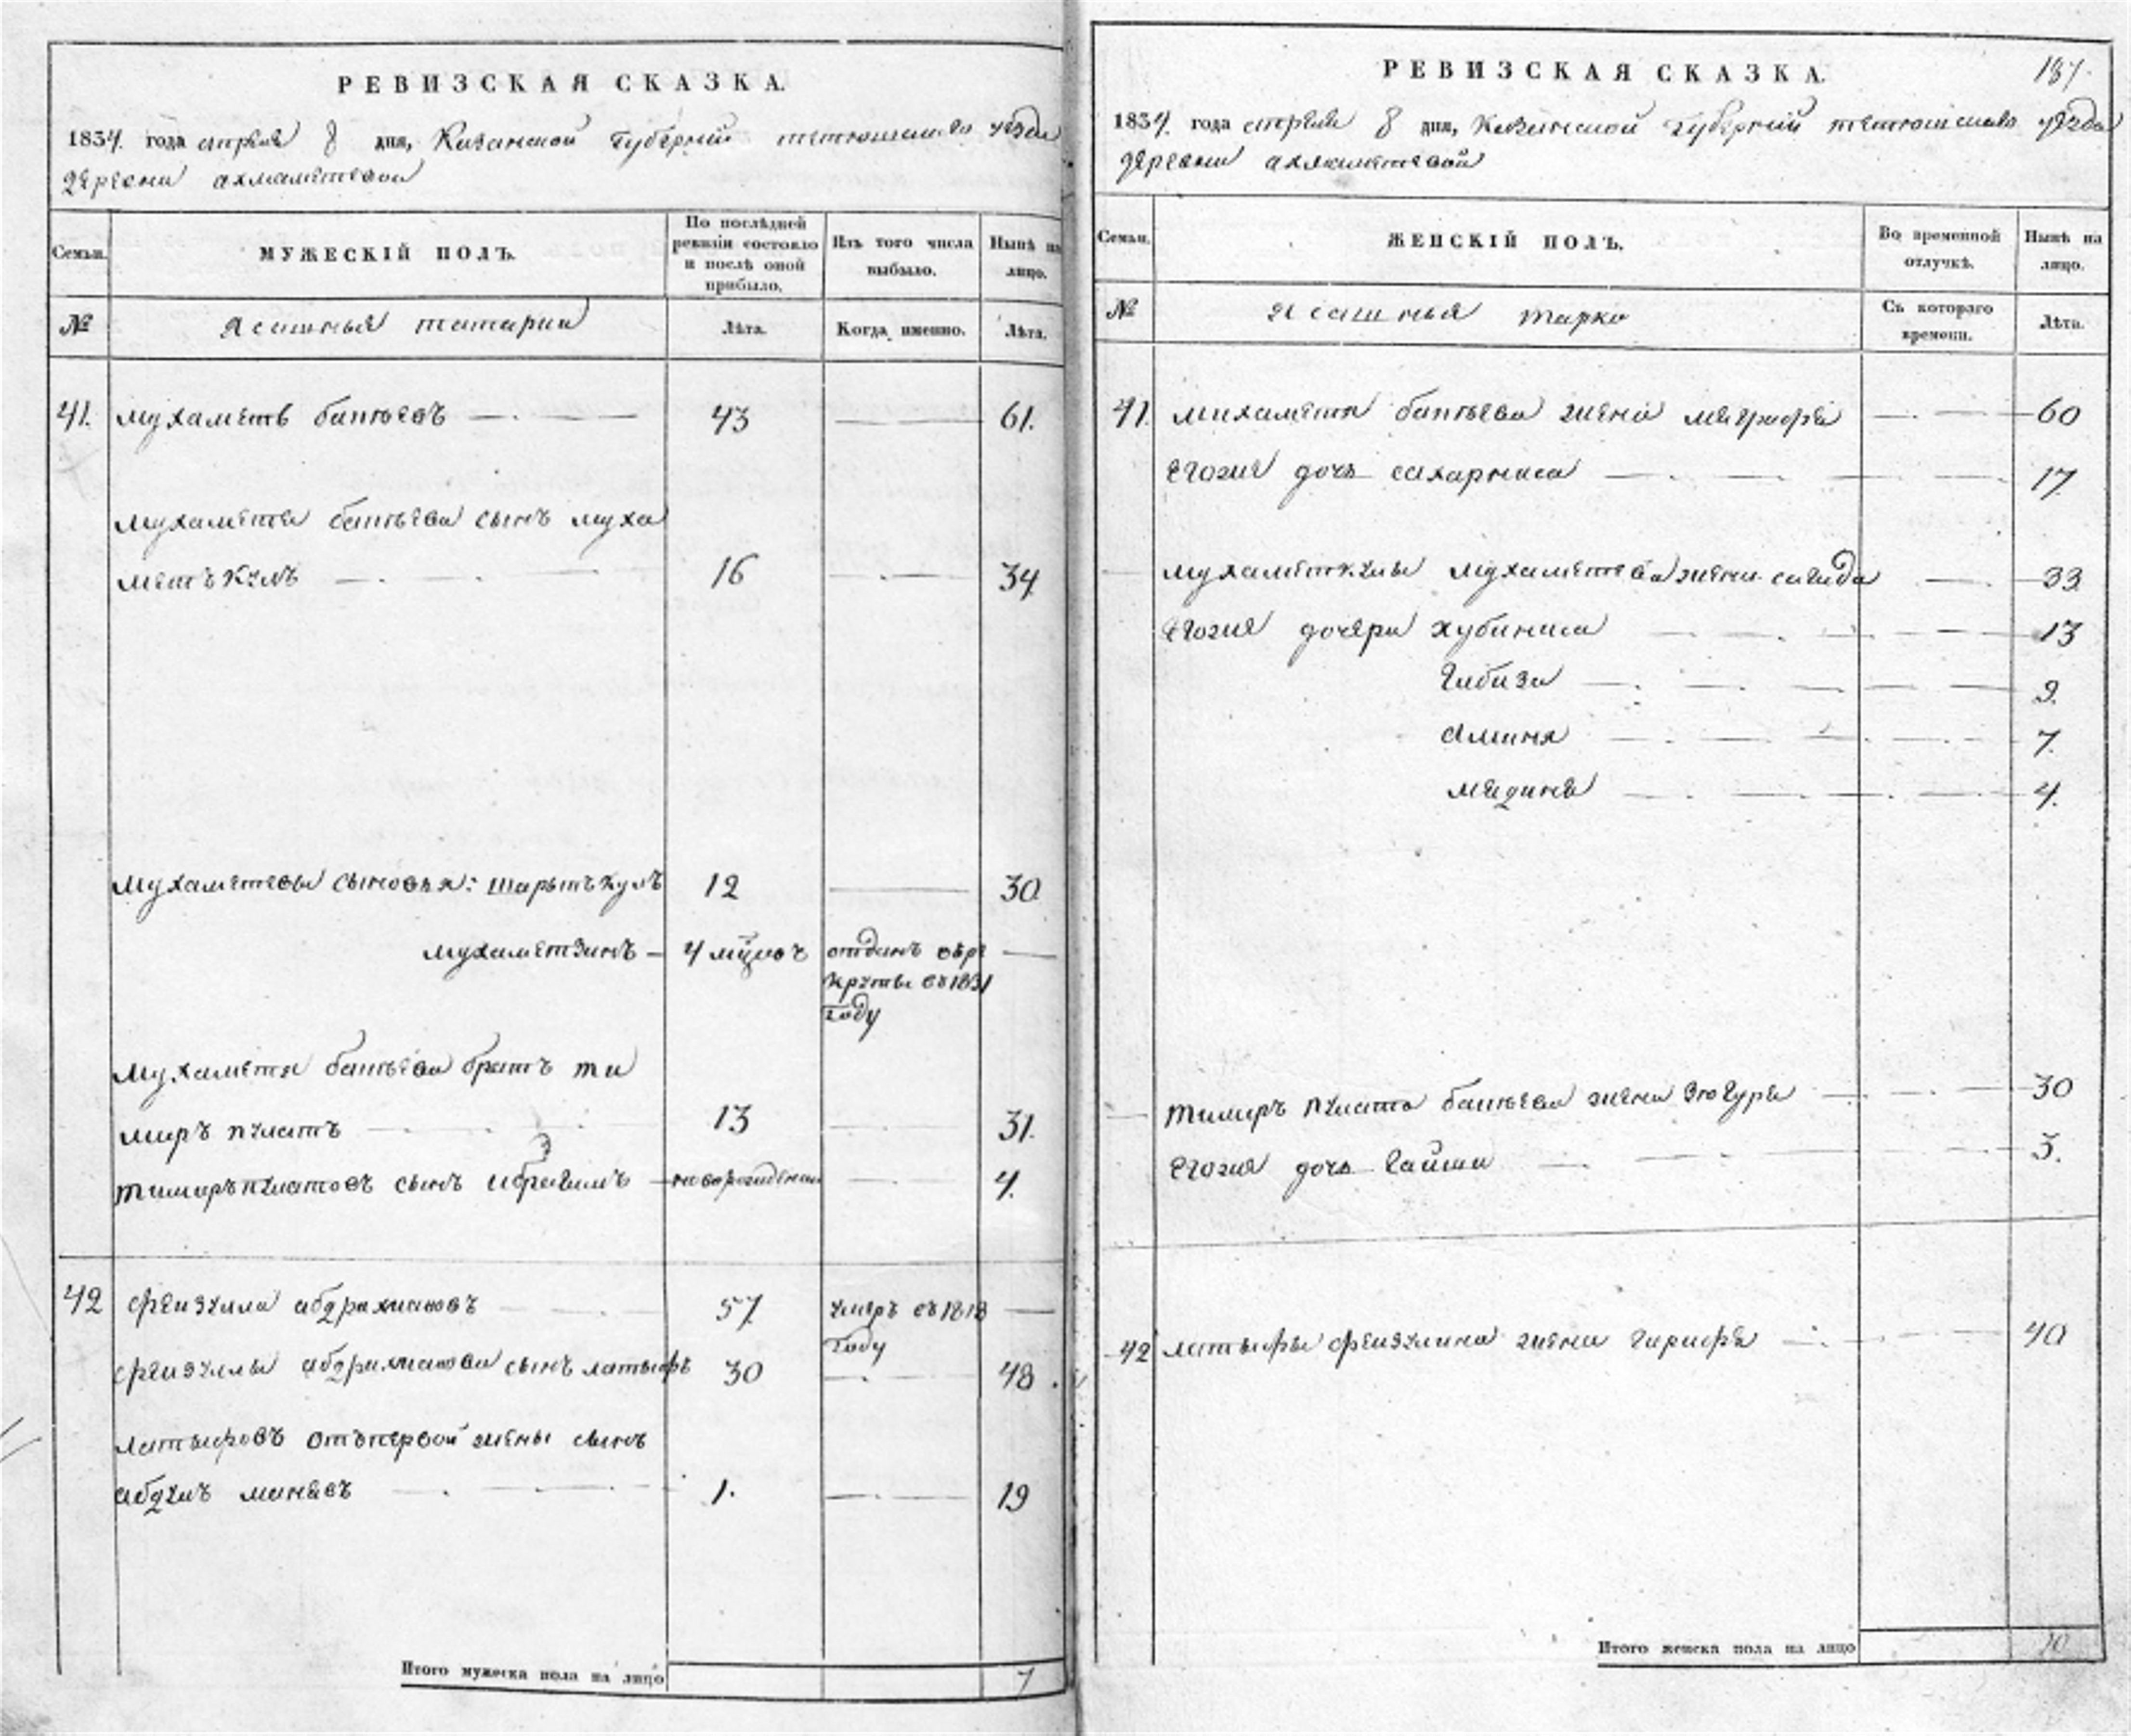 РЕВИЗСКАЯ СКАЗКА.
1834 года апреля 8 дня, Казанской Губернии тетюшскаго уезда
деревни ахмаметевой
Семьи.
МУЖЕСКІЙ ПОЛЪ.
По послѣдней ревизіи состояло и послѣ оной прибыло.
Изъ того числа выбыло.
Нынѣ на лицо.
№
Ясашныя татары
Лѣта.
Когда именно.
Лѣта.
41. мухаметъ батыевъ 43 61.
мухаметя батыева сынъ муха
метъ кулъ 16 34
мухаметевы сыновья: шарыпъ кулъ 12 30
мухаметзинъ 4 мцовъ отданъ в ре
круты въ 1831
году
мухаметя батыева братъ ти
миръ пулатъ 13 31.
тимиръ пулатовъ сынъ ибрагимъ новорожденъ 4.
42 фейзулла абдрахмановъ 57 умеръ въ 1818
году
фейзуллы абдрахманова сынъ латыфъ 30 48
латыфовъ отъ первой жены сынъ
абдулъ манавъ 1. 19
Итого мужеска пола на лицо 7
РЕВИЗСКАЯ СКАЗКА.
187.
1834 года апреля 8 дня, Казанской губернии тетюшскаго уезда
деревни ахмаметевой
Семьи.
ЖЕНСКІЙ ПОЛЪ.
Во временной отлучкѣ.
Нынѣ на лицо.
№
Ясашныя
Съ котораго времени.
Лѣта.
41. мухаметя батыева жена 60
егоже дочь сахарниса 17
мухаметкулы мухаметева жена сагида 33
егоже дочери хубиниса 13
габиза 9.
Амина 7.
медина 4.
тимиръ пулата батыева жена зюгура 30
егоже дочь гайша 3.
42 латыфы фейзулина жена гарифа 40
Итого женска пола на лицо 10